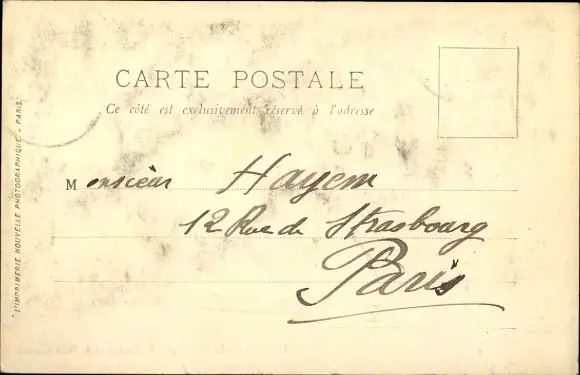 CARTE POSTALE
Ce côté est exclusivement réservé à l'adresse
Monsieur Hayem
12 Rue de Strasbourg
Paris
L'IMPRIMERIE NOUVELLE PHOTOGRAPHIQUE - PARIS.